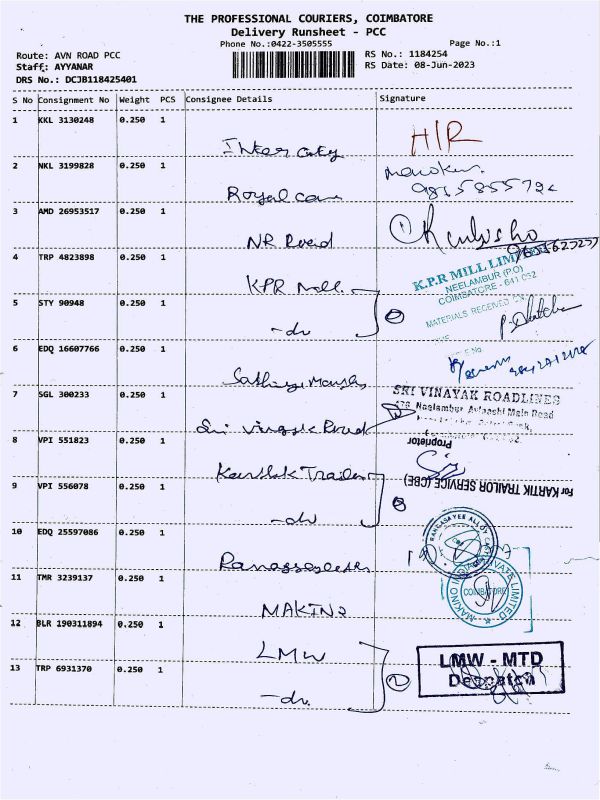 THE PROFESSIONAL COURIERS, COIMBATORE
Delivery Runsheet - PCC
Phone No.:0422-3505555
Page No.:1
Route: AVN ROAD PCC
RS No.: 1184254
Staff: AYYANAR
RS Date: 08-Jun-2023
DRS No.: DCJB118425401
S No Consignment No Weight PCS Consignee Details Signature
1 KKL 3130248 0.250 1
Inter city HIR
2 NKL 3199828 0.250 1
Royal care
3 AMD 26953517 0.250 1
NR Road
4 TRP 4823898 0.250 1
KPR Mill
K.P.R MILL LIMITED
NEELAMBUR (P.O)
COIMBATORE - 641 062
MATERIALS RECEIVED
5 STY 90948 0.250 1
- do 2
6 EDQ 16607766 0.250 1
7 SGL 300233 0.250 1
Sri Vinayak Road
SRI VINAYAK ROADLINES
Neelambur Avinashi Main Road
8 VPI 551823 0.250 1
Proprietor
Karthik Trailer
For KARTIK TRAILOR SERVICE (CBE)
9 VPI 556078 0.250 1
- do
10 EDQ 25597086 0.250 1
11 TMR 3239137 0.250 1
MAKINO
COIMBATORE
PRIVATE LIMITED
12 BLR 190311894 0.250 1
LMW
LMW - MTD
Despatch
13 TRP 6931370 0.250 1
- do 2